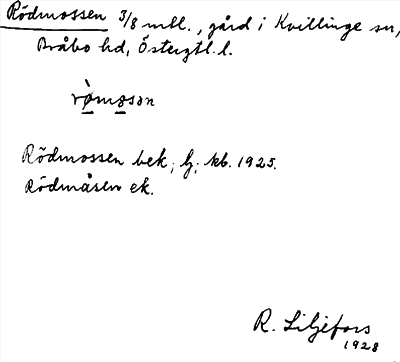 Rödmossen 3/8 mtl., gård i Kvillinge sn,
Bråbo hd, Östergtl. l.
rò̱mo̱sən
Rödmossen bek; lj; kb. 1925.
Rödmåsen ek.
R. Liljefors
1928